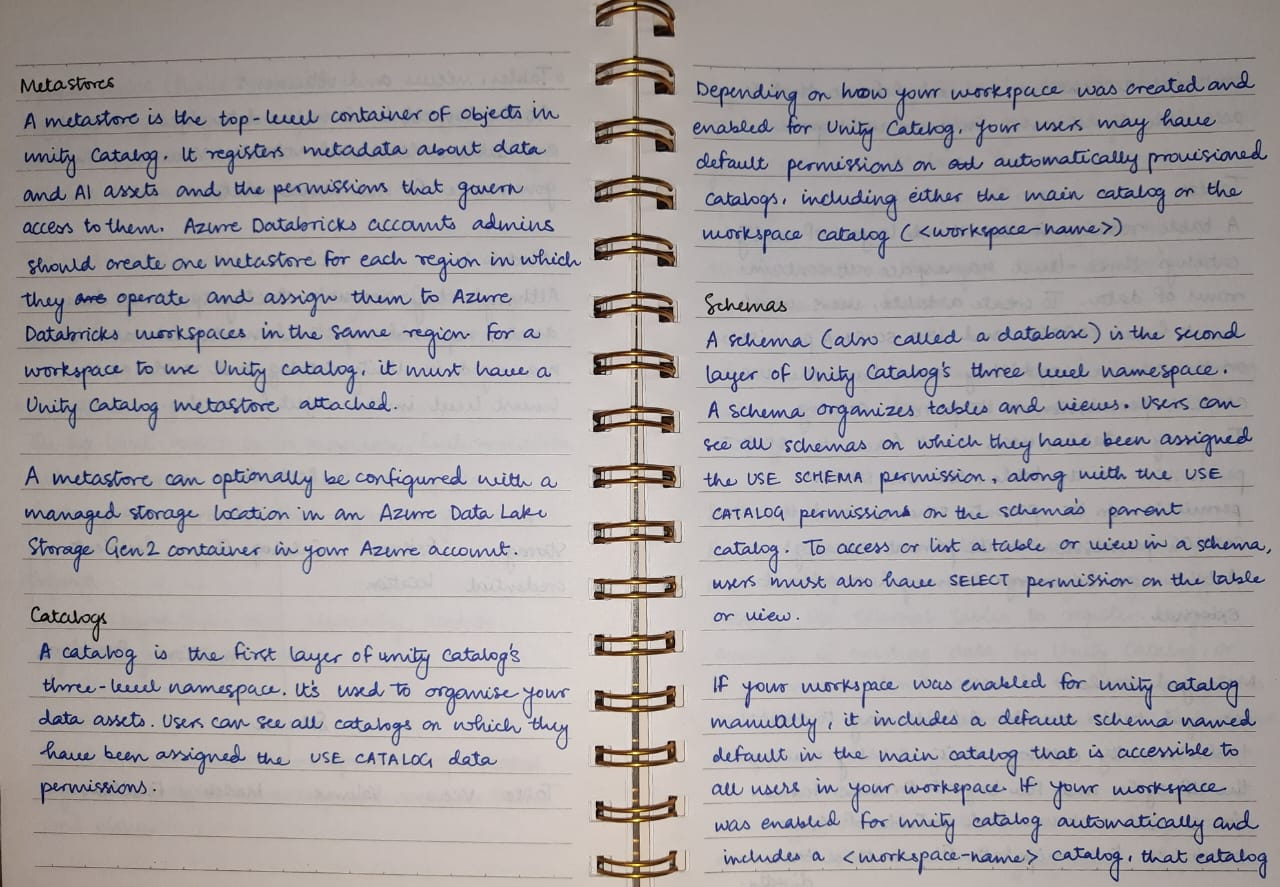 Metastores
A metastore is the top-level container of objects in
unity Catalog. It registers metadata about data
and AI assets and the permissions that govern
access to them. Azure Databricks accounts admins
should create one metastore for each region in which
they are operate and assign them to Azure
Databricks workspaces in the same region. For a
workspace to use Unity catalog, it must have a
Unity Catalog metastore attached.
A metastore can optionally be configured with a
managed storage location in an Azure Data Lake
Storage Gen2 container in your Azure account.
Catalogs
A catalog is the first layer of unity catalog's
three-level namespace. It's used to organise your
data assets. Users can see all catalogs on which they
have been assigned the USE CATALOG data
permissions.
Depending on how your workspace was created and
enabled for Unity Catelog, your users may have
default permissions on automatically provisioned
catalogs, including either the main catalog on the
workspace catalog (<workspace-name>)
Schemas
A schema (also called a database) is the second
layer of Unity Catalog's three level namespace.
A schema organizes tables and views. Users can
see all schemas on which they have been assigned
the USE SCHEMA permission, along with the USE
CATALOG permission on the schema's parent
catalog. To access or list a table or view in a schema,
users must also have SELECT permission on the table
or view.
If your workspace was enabled for unity catalog
manually, it includes a default schema named
default in the main catalog that is accessible to
all users in your workspace. If your workspace
was enabled for unity catalog automatically and
includes a <workspace-name> catalog, that catalog